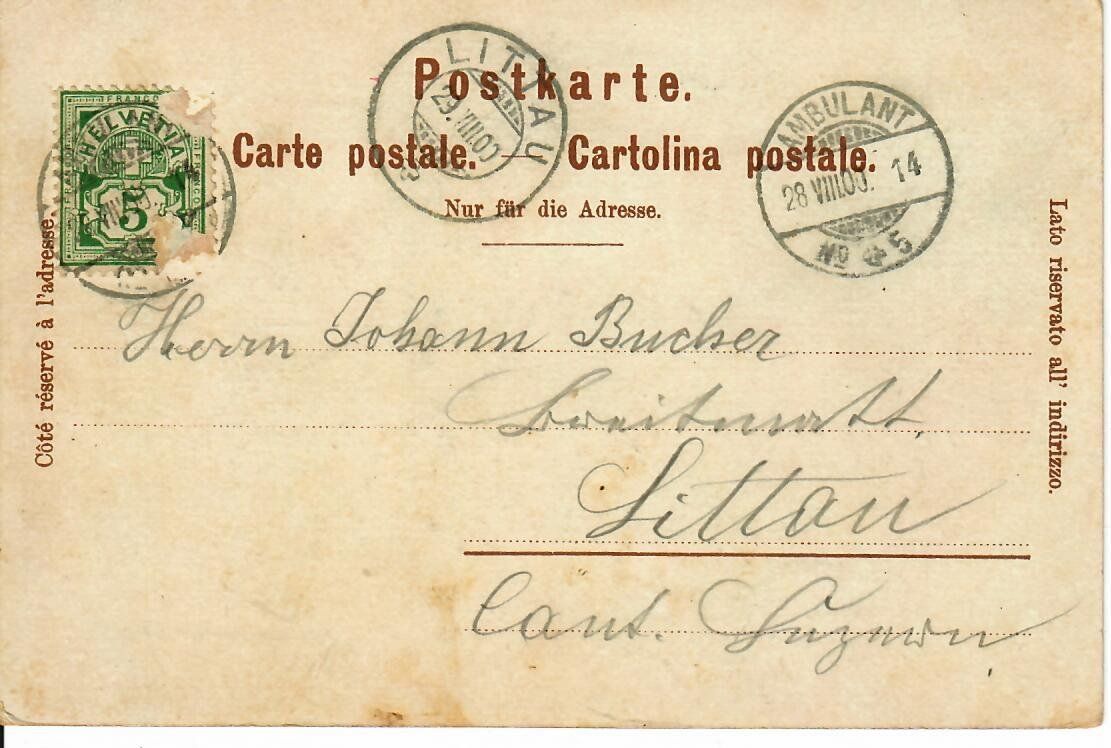 Postkarte.
Carte postale. — Cartolina postale.
Nur für die Adresse.
Côté réservé à l'adresse.
Lato riservato all' indirizzo.
FRANCO
HELVETIA
5
LITTAU
29.VIII.00
AMBULANT
28 VIII.00. 14
No 5
Herrn Johann Bucher
Breitmatt,
Littau
Cant. Luzern